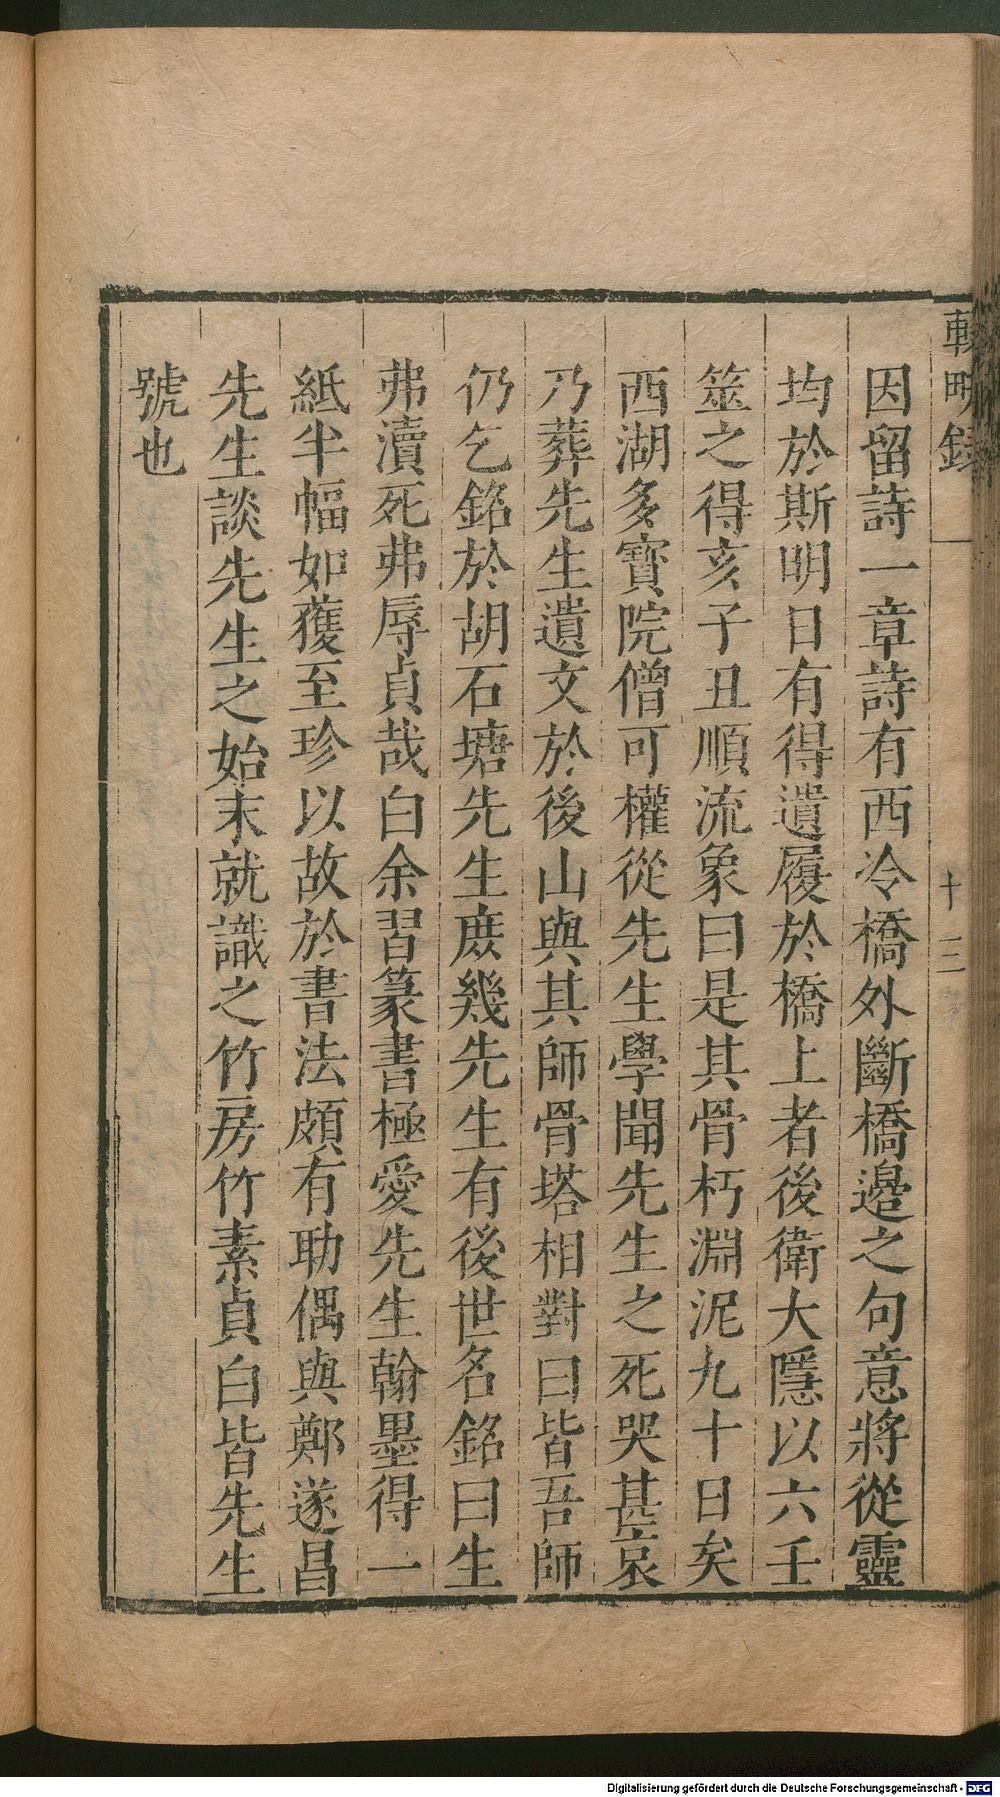 輟畊錄
十三
因留詩一章詩有西冷橋外斷橋邊之句意將從靈
均於斯明日有得遺履於橋上者後衛大隱以六壬
筮之得亥子丑順流象曰是其骨朽淵泥九十日矣
西湖多寳院僧可權從先生學聞先生之死哭甚哀
乃葬先生遺文於後山與其師骨塔相對曰皆吾師
仍乞銘於胡石塘先生庶幾先生有後世名銘曰生
弗瀆死弗辱貞哉白余習篆書極愛先生翰墨得一
紙半幅如獲至珍以故於書法頗有助偶與鄭遂昌
先生談先生之始末就識之竹房竹素貞白皆先生
號也
Digitalisierung gefördert durch die Deutsche Forschungsgemeinschaft - DFG